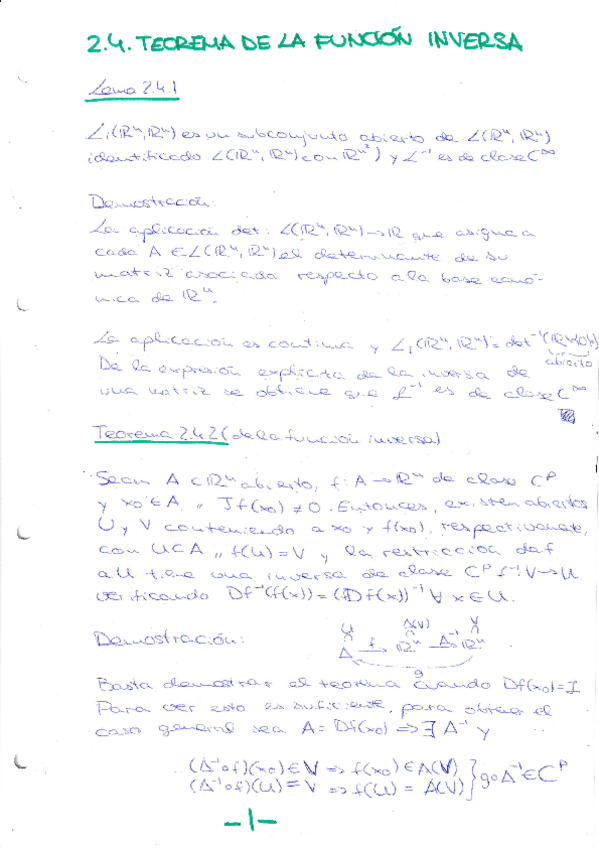 2.4. TEOREMA DE LA FUNCIÓN INVERSA
Lema 2.4.1
L₁(ℝⁿ,ℝⁿ) es un subconjunto abierto de L(ℝⁿ,ℝⁿ)
identificado L(ℝⁿ,ℝⁿ) con ℝⁿ²) y L⁻¹ es de clase C^∞
Demostración:
La aplicación det: L(ℝⁿ,ℝⁿ)→ℝ que asigna a
cada A ∈ L(ℝⁿ,ℝⁿ) el determinante de su
matriz asociada respecto a la base canó-
nica de ℝⁿ.
La aplicación es continua y L₁(ℝⁿ,ℝⁿ) = det⁻¹(ℝ\{0})
abierto
De la expresión explícita de la inversa de
una matriz se obtiene que L⁻¹ es de clase C^∞
Teorema 2.4.2 (de la función inversa)
Sean A⊂ℝⁿ abierto, f: A→ℝⁿ de clase Cᵖ
y x₀∈A ,, Jf(x₀) ≠ 0. Entonces, existen abiertos
U y V conteniendo a x₀ y f(x₀), respectivamente,
con U⊂A ,, f(U)=V y la restricción de f
a U tiene una inversa de clase Cᵖ f⁻¹: V→U
verificando Df⁻¹(f(x)) = (Df(x))⁻¹ ∀ x∈U.
Demostración:
U A(V) V
A f→ ℝⁿ A⁻¹→ ℝⁿ
g
Basta demostrar el teorema cuando Df(x₀)=I
Para ver esto es suficiente, para obtener el
caso general sea A = Df(x₀) ⇒ ∃ A⁻¹ y
(A⁻¹∘f)(x₀)∈V ⇒ f(x₀)∈A(V)
(A⁻¹∘f)(U) = V ⇒ f(U) = A(V) } g∘A⁻¹∈Cᵖ
-1-